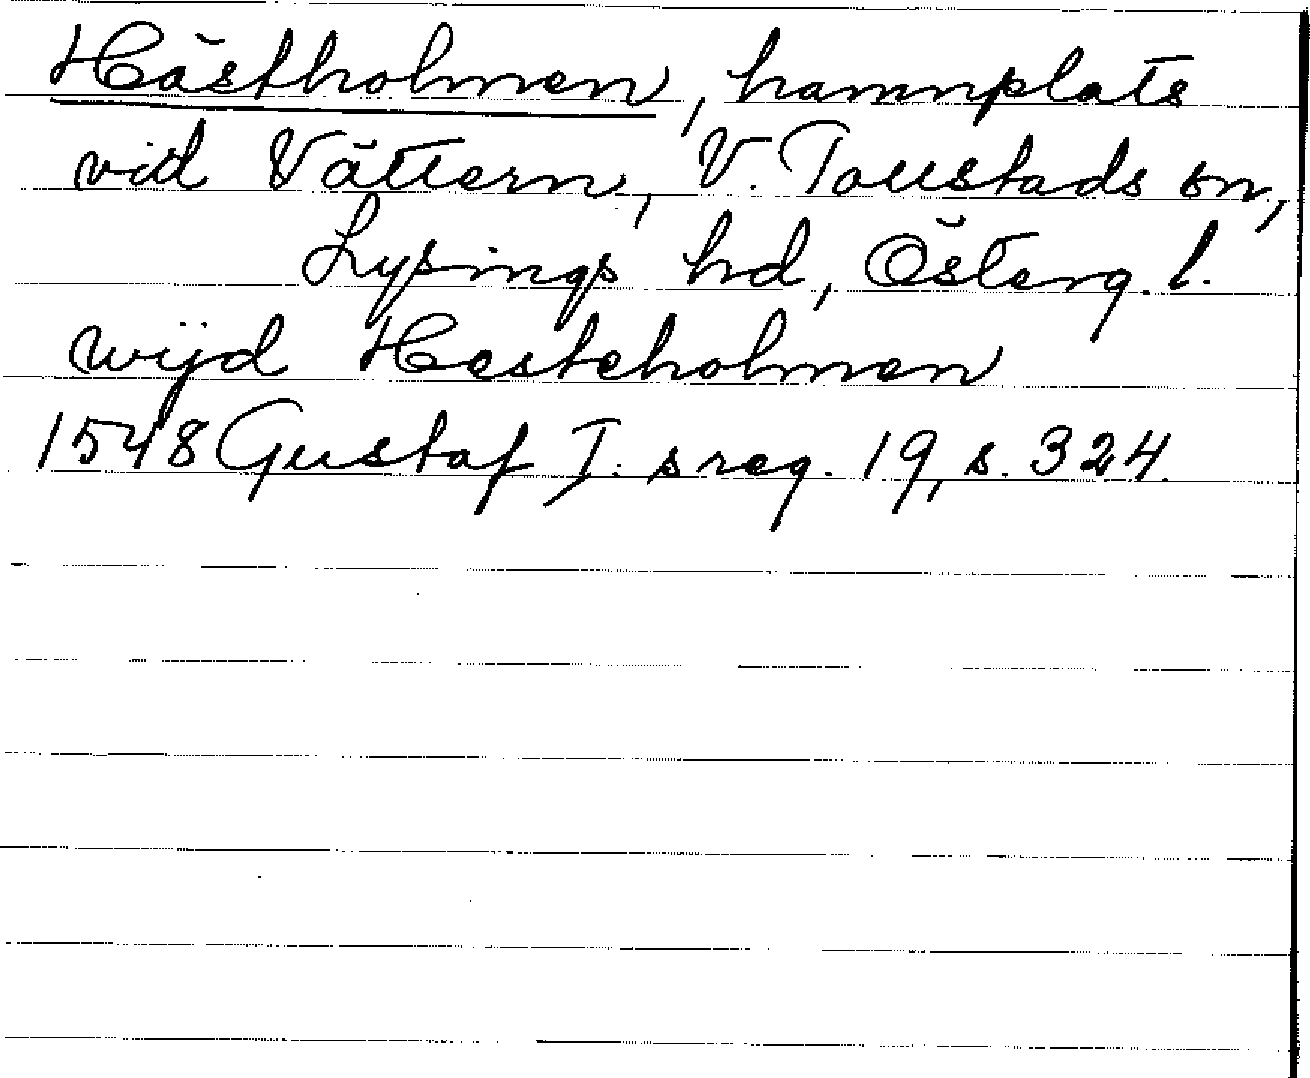 Hästholmen, hamnplats
vid Vättern, V. Tollstads sn,
Lysings hd, Österg. l.
wijd Hesteholmen
1548 Gustaf I:s reg. 19, s. 324.